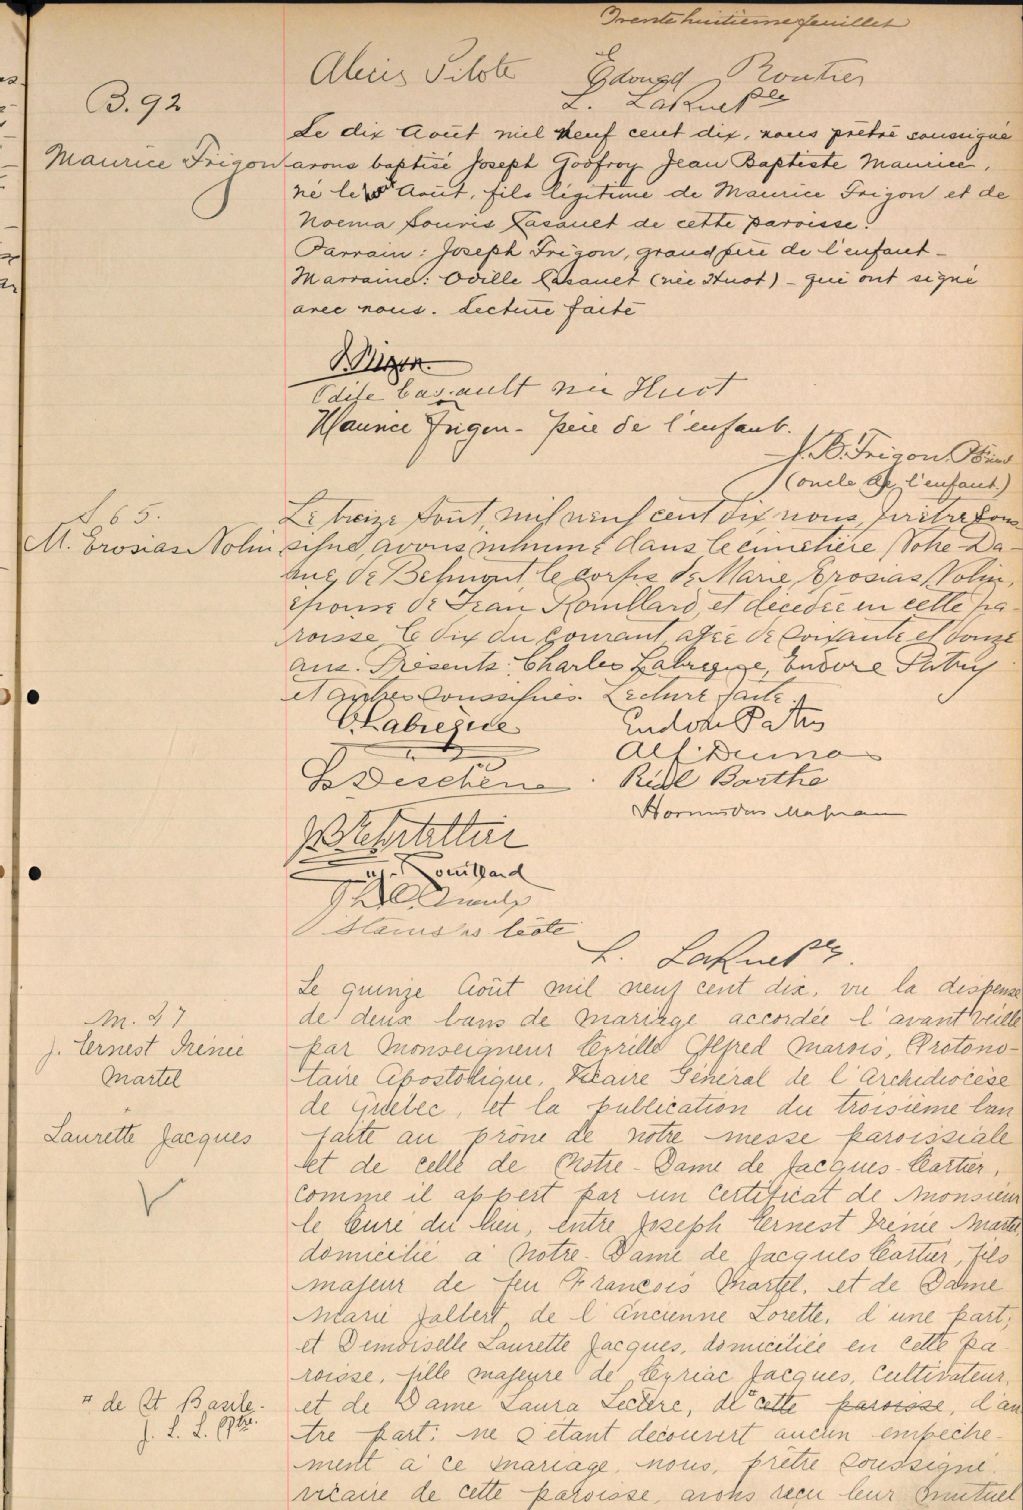 Trente huitième feuillet
Alexis Pilote Edouard Routier
L. LaRue Ptre
B. 92
Maurice Frigon
Le dix Août mil neuf cent dix, nous prêtre soussigné
avons baptisé Joseph Godfroy Jean Baptiste Maurice,
né le huit Août, fils légitime de Maurice Frigon et de
Noema Souris Casault de cette paroisse.
Parrain: Joseph Frigon, grand père de l'enfant -
Marraine: Odille Casault (née Huot) - qui ont signé
avec nous. Lecture faite
J. Frigon.
Odile Casault née Huot
Maurice Frigon - père de l'enfant.
J. B. Frigon. Ptre
(oncle de l'enfant)
S 65.
M. Erosias Nolin
Le treize Août, mil neuf cent dix nous, prêtre sous
signé, avons inhumé dans le cimetière Notre-Da-
me de Belmont le corps de Marie Erosias Nolin,
épouse de Jean Rouillard, et décédée en cette pa-
roisse le dix du courant, agée de soixante et douze
ans. Présents: Charles Labrègue, Endore Patry
et autres soussignés. Lecture faite.
C. Labrègue Endore Patry
Alf Dumas
Deschêne Réal Barthe
Hormisdas
J. B. Letellier
Rouillard
Stanislas Côté
L. LaRue Ptre.
M. 47
J. Ernest Irénée
Martel
Laurette Jacques
Le quinze Août mil neuf cent dix, vu la dispense
de deux bans de mariage accordée l'avant veille
par Monseigneur Cyrille Alfred Marois, Protono-
taire Apostolique, Vicaire Général de l'Archidiocèse
de Québec, et la publication du troisième ban
faite au prône de notre messe paroissiale
et de celle de Notre-Dame de Jacques-Cartier,
comme il appert par un certificat de Monsieur
le Curé du lieu, entre Joseph Ernest Irénée Martel,
domicilié à Notre-Dame de Jacques Cartier, fils
majeur de feu François Martel, et de Dame
Marie Jalbert de l'Ancienne Lorette, d'une part;
et Demoiselle Laurette Jacques, domiciliée en cette pa-
roisse, fille majeure de Cyriac Jacques, cultivateur,
et de Dame Laura Leclerc, de ¤ cette paroisse, d'au
¤ de St Basile.
J. L. L. Ptre.
tre part; ne s'étant découvert aucun empêche-
ment à ce mariage, nous, prêtre soussigné,
vicaire de cette paroisse, avons reçu leur mutuel